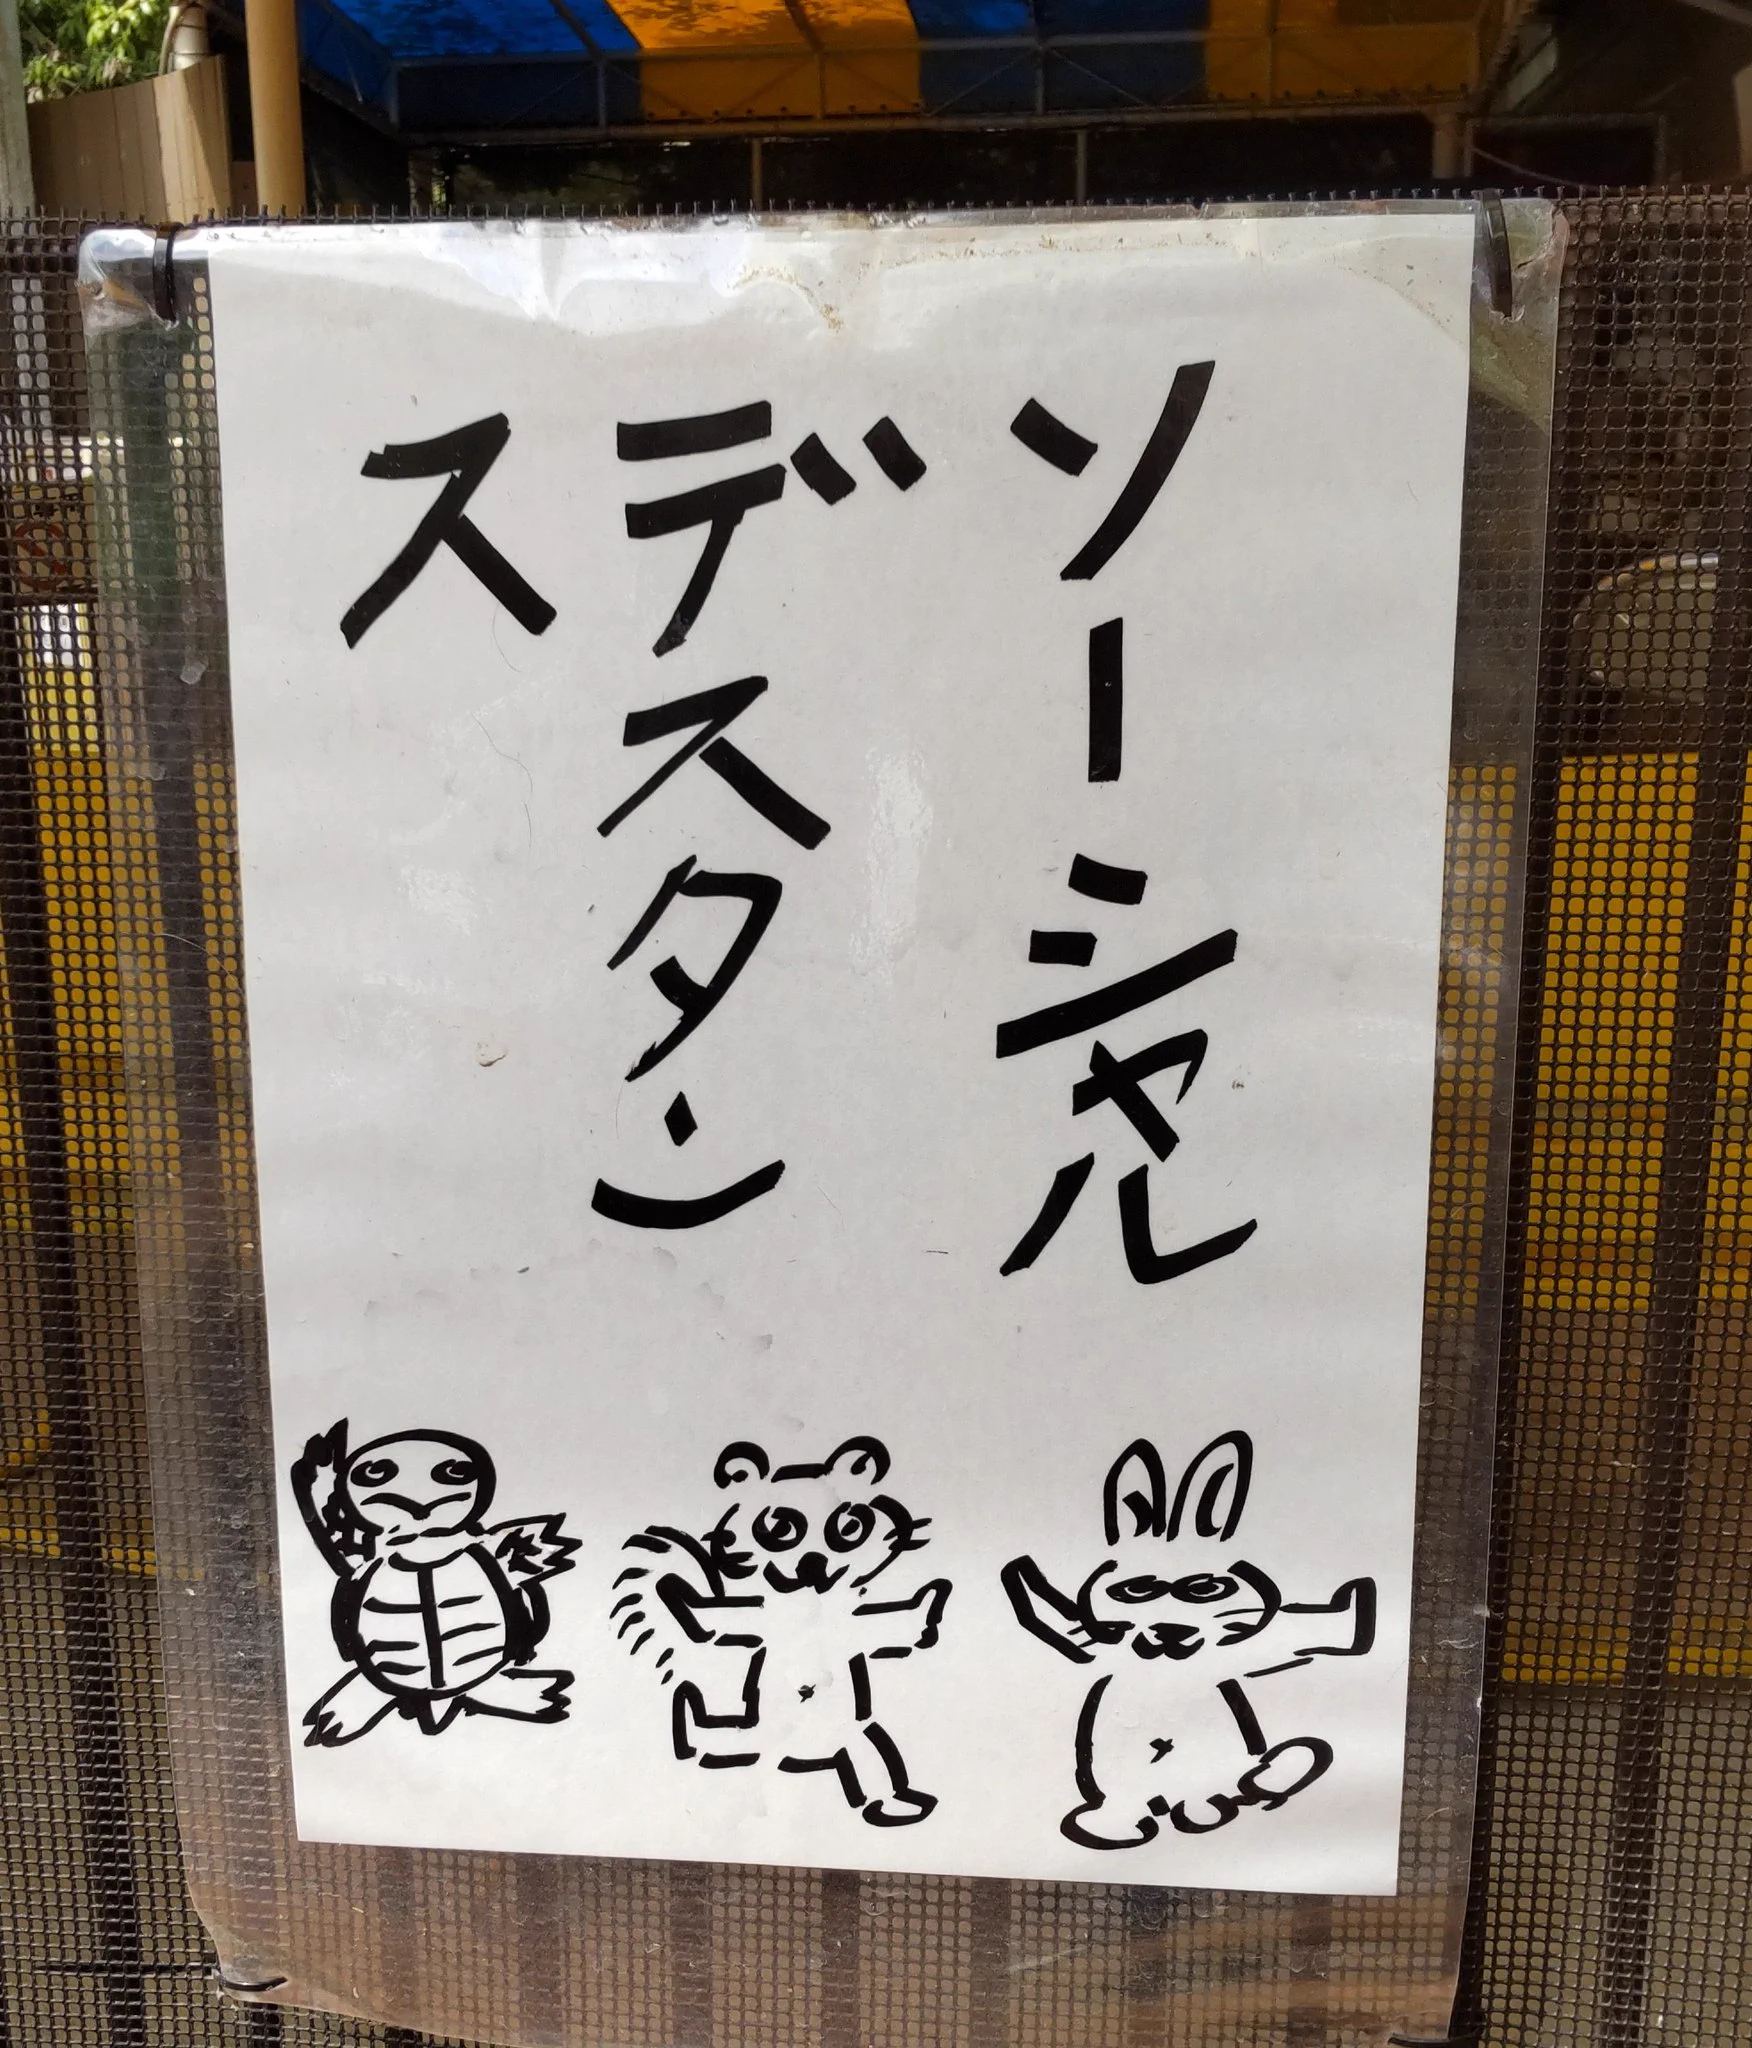 ソーシャル
デスタン
ス